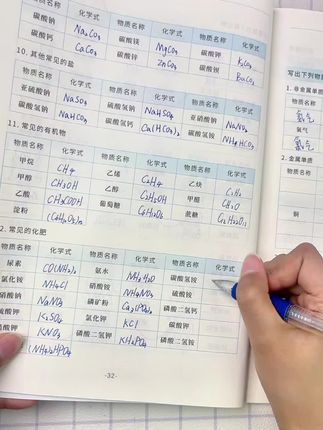 物质名称 化学式 物质名称 化学式 物质名称 化学式
碳酸钠 Na₂CO₃ 碳酸镁 MgCO₃ 碳酸钾 K₂CO₃
碳酸钙 CaCO₃ 碳酸锌 ZnCO₃ 碳酸钡 BaCO₃
10. 其他常见的盐
物质名称 化学式 物质名称 化学式 物质名称 化学式
亚硫酸钠 NaSO₃ 硫酸氢钠 NaHSO₄ 亚硝酸钠 NaNO₂
碳酸氢钠 NaHCO₃ 碳酸氢钙 Ca(HCO₃)₂ 碳酸氢铵 NH₄HCO₃
11. 常见的有机物
物质名称 化学式 物质名称 化学式 物质名称 化学式
甲烷 CH₄ 乙烯 C₂H₄ 乙炔 C₂H₂
甲醇 CH₃OH 乙醇 C₂H₅OH 甲醛 CH₂O
乙酸 CH₃COOH 葡萄糖 C₆H₁₂O₆ 蔗糖 C₁₂H₂₂O₁₁
淀粉 (C₆H₁₀O₅)n
2. 常见的化肥
物质名称 化学式 物质名称 化学式 物质名称 化学式
尿素 CO(NH₂)₂ 氨水 NH₃·H₂O 碳酸氢铵
氯化铵 NH₄Cl 硝酸铵 NH₄NO₃ 硫酸铵
硝酸钠 NaNO₃ 磷矿粉 Ca₃(PO₄)₂
硫酸钾 K₂SO₄ 氯化钾 KCl 磷酸二氢铵
硝酸钾 KNO₃ 磷酸二氢钾 KH₂PO₄
(NH₄)₂HPO₄
-32-
写出下列物
1. 非金属单质
物质名称
氢气
氧气
氯气
2. 金属单质
物质名称
铜